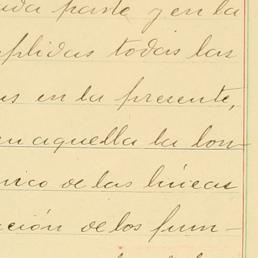 ida parte y en la
plidas todas las
as en la presente,
en aquella la lon-
nico de las líneas
ación de los fun-